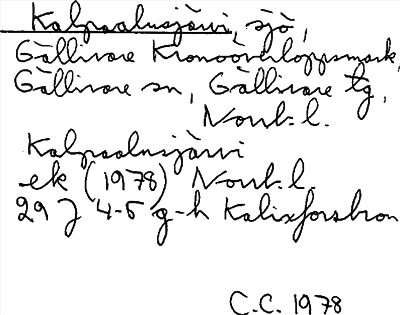 Kalpaalusjärvi, sjö,
Gällivare Kronoöverloppsmark,
Gällivare sn, Gällivare tg,
Norrb. l.
Kalpaalusjärvi
ek (1978) Norrb. l.
29 J 4-5 g-h Kalixforsbron
C.C. 1978